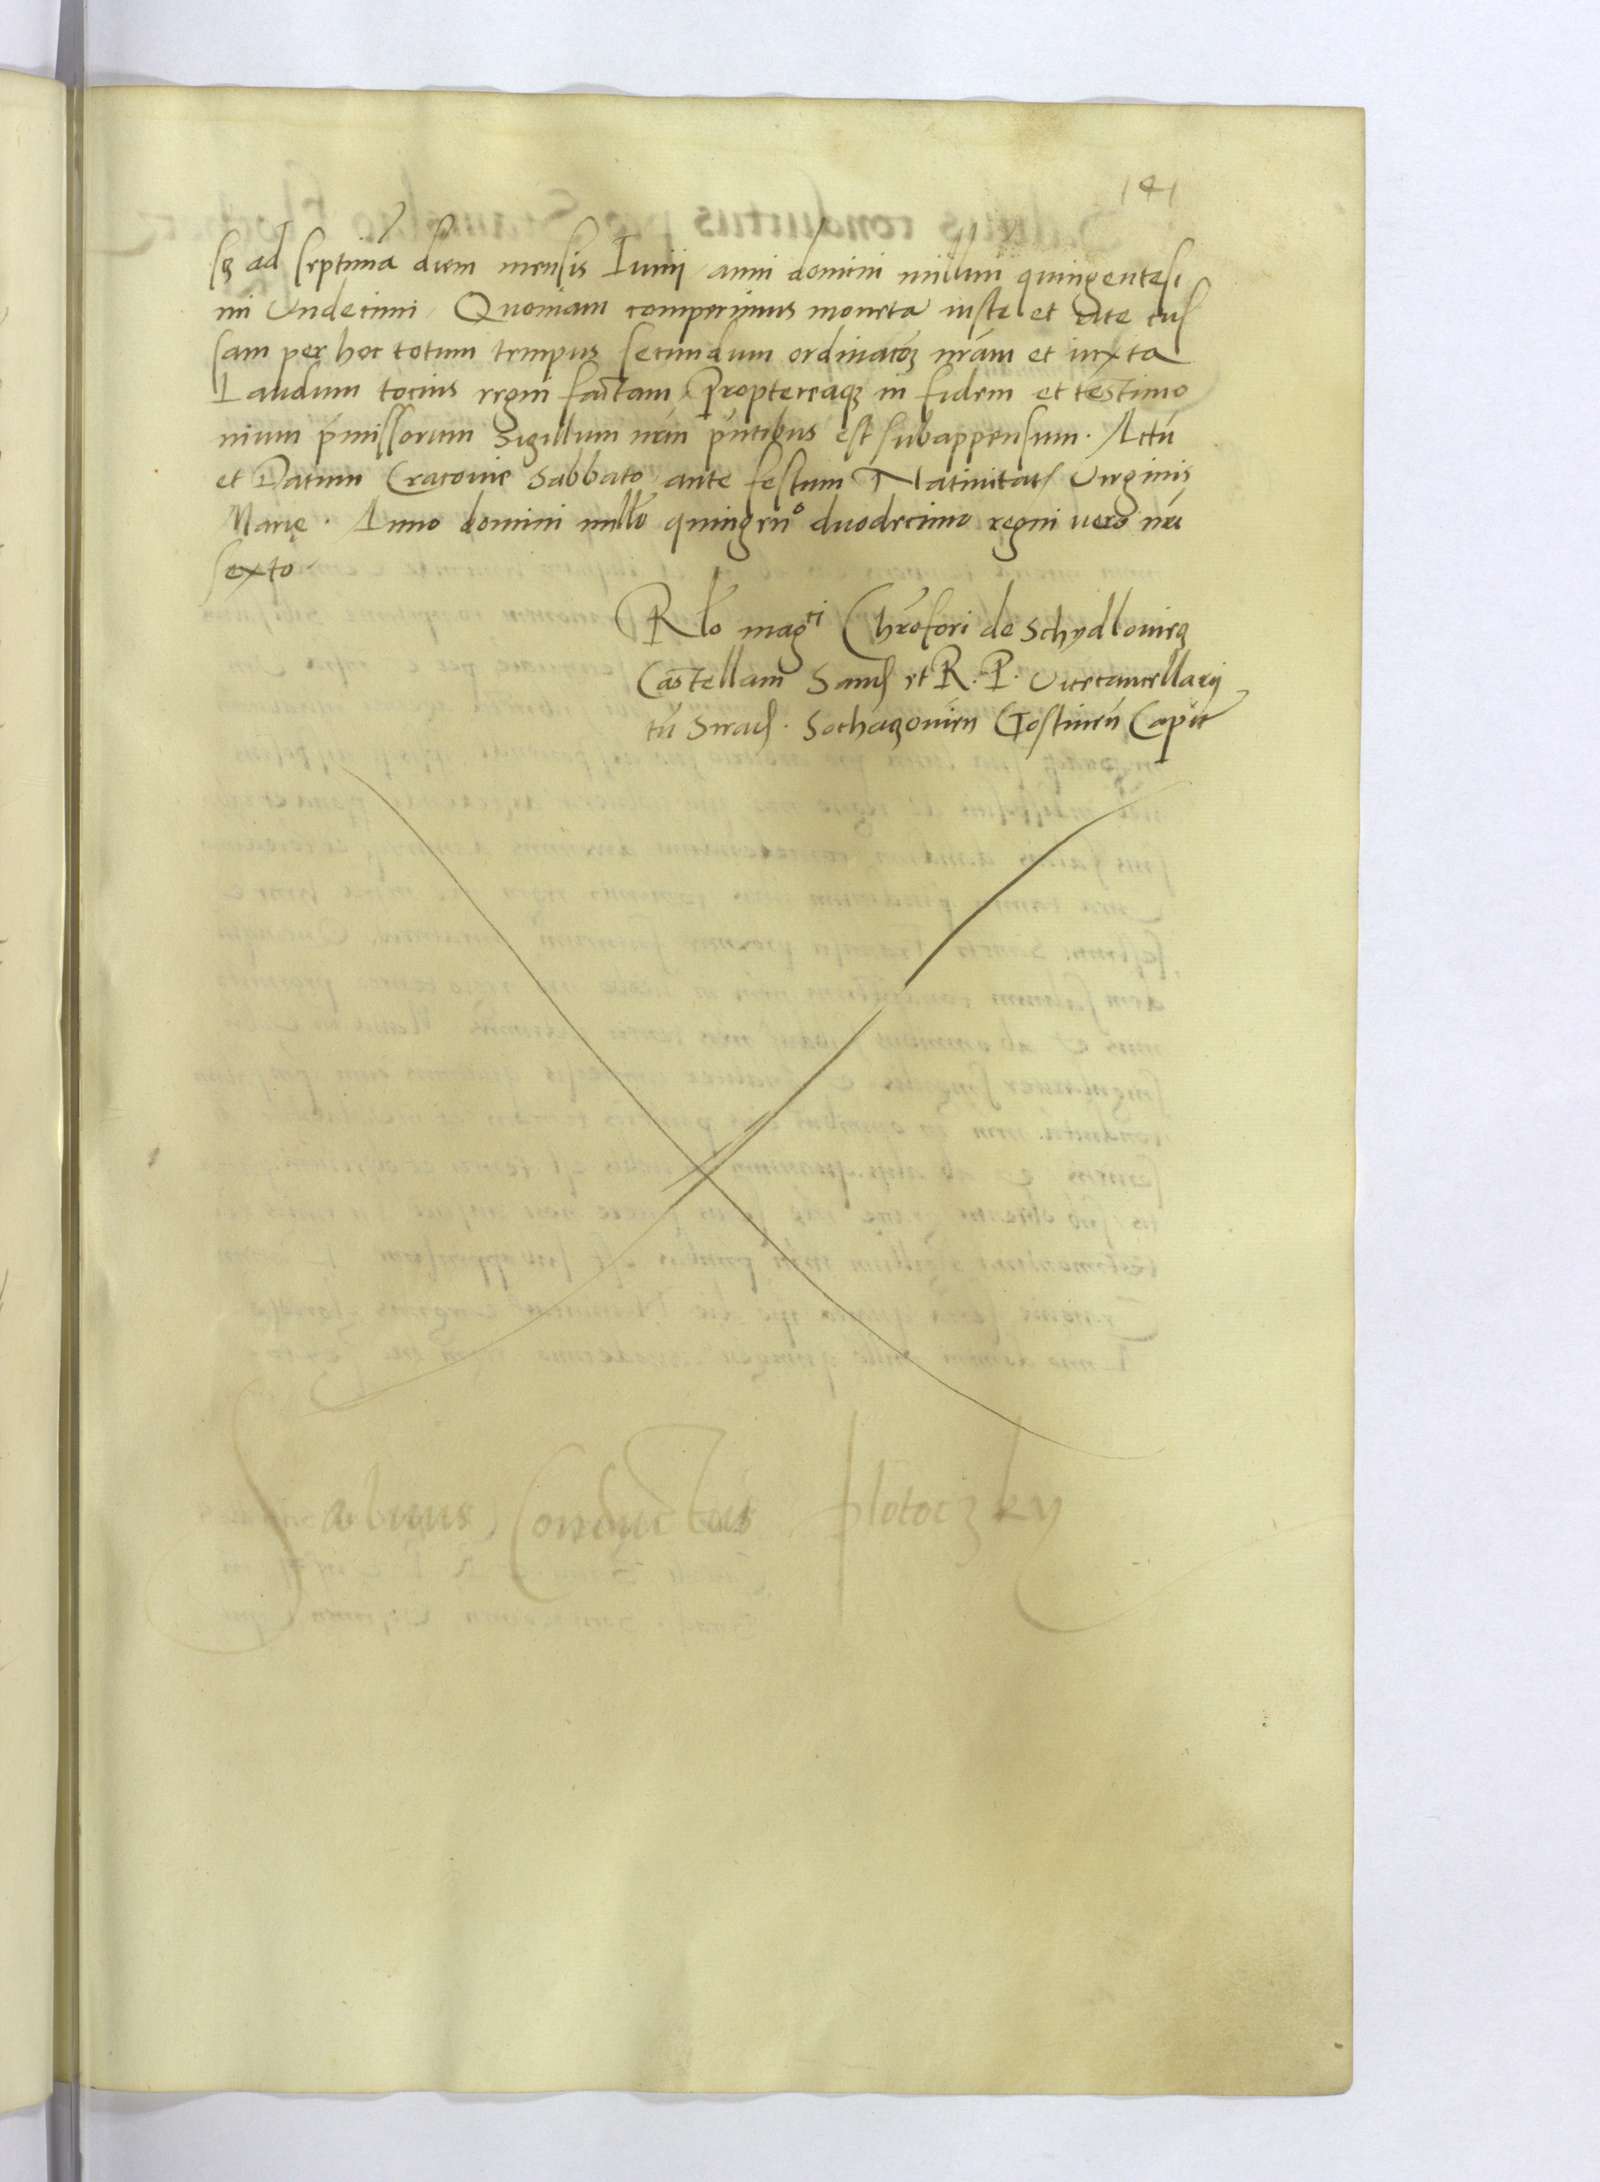 141
sq ad septimã diem mensis Iunij anni domini millmi quingentesi
mi Undecimi, Quoniam comperimus moneta iuste et rite cus
sam per hoc totum tempus secundum ordinacõz nr̃am et iuxta
Laudum tocius regni factam, Proptereaqz in fidem et testimo
nium p̃missorum sigillum nr̃m pñtibus est subappensum. Actũ
et Datum Cracovie sabbato ante festum Nativitatis Virginis
Marie. Anno domini millo quingenº duodecimo regni vero nr̃i
sexto
Rlo mag^ci Chrofori de Schydlovieq
Castellani Sand et R. P. Vicecancellarij
tũ Sirad. Sochazovien Gostinen Capit
Salvus Conductus Plotoczky